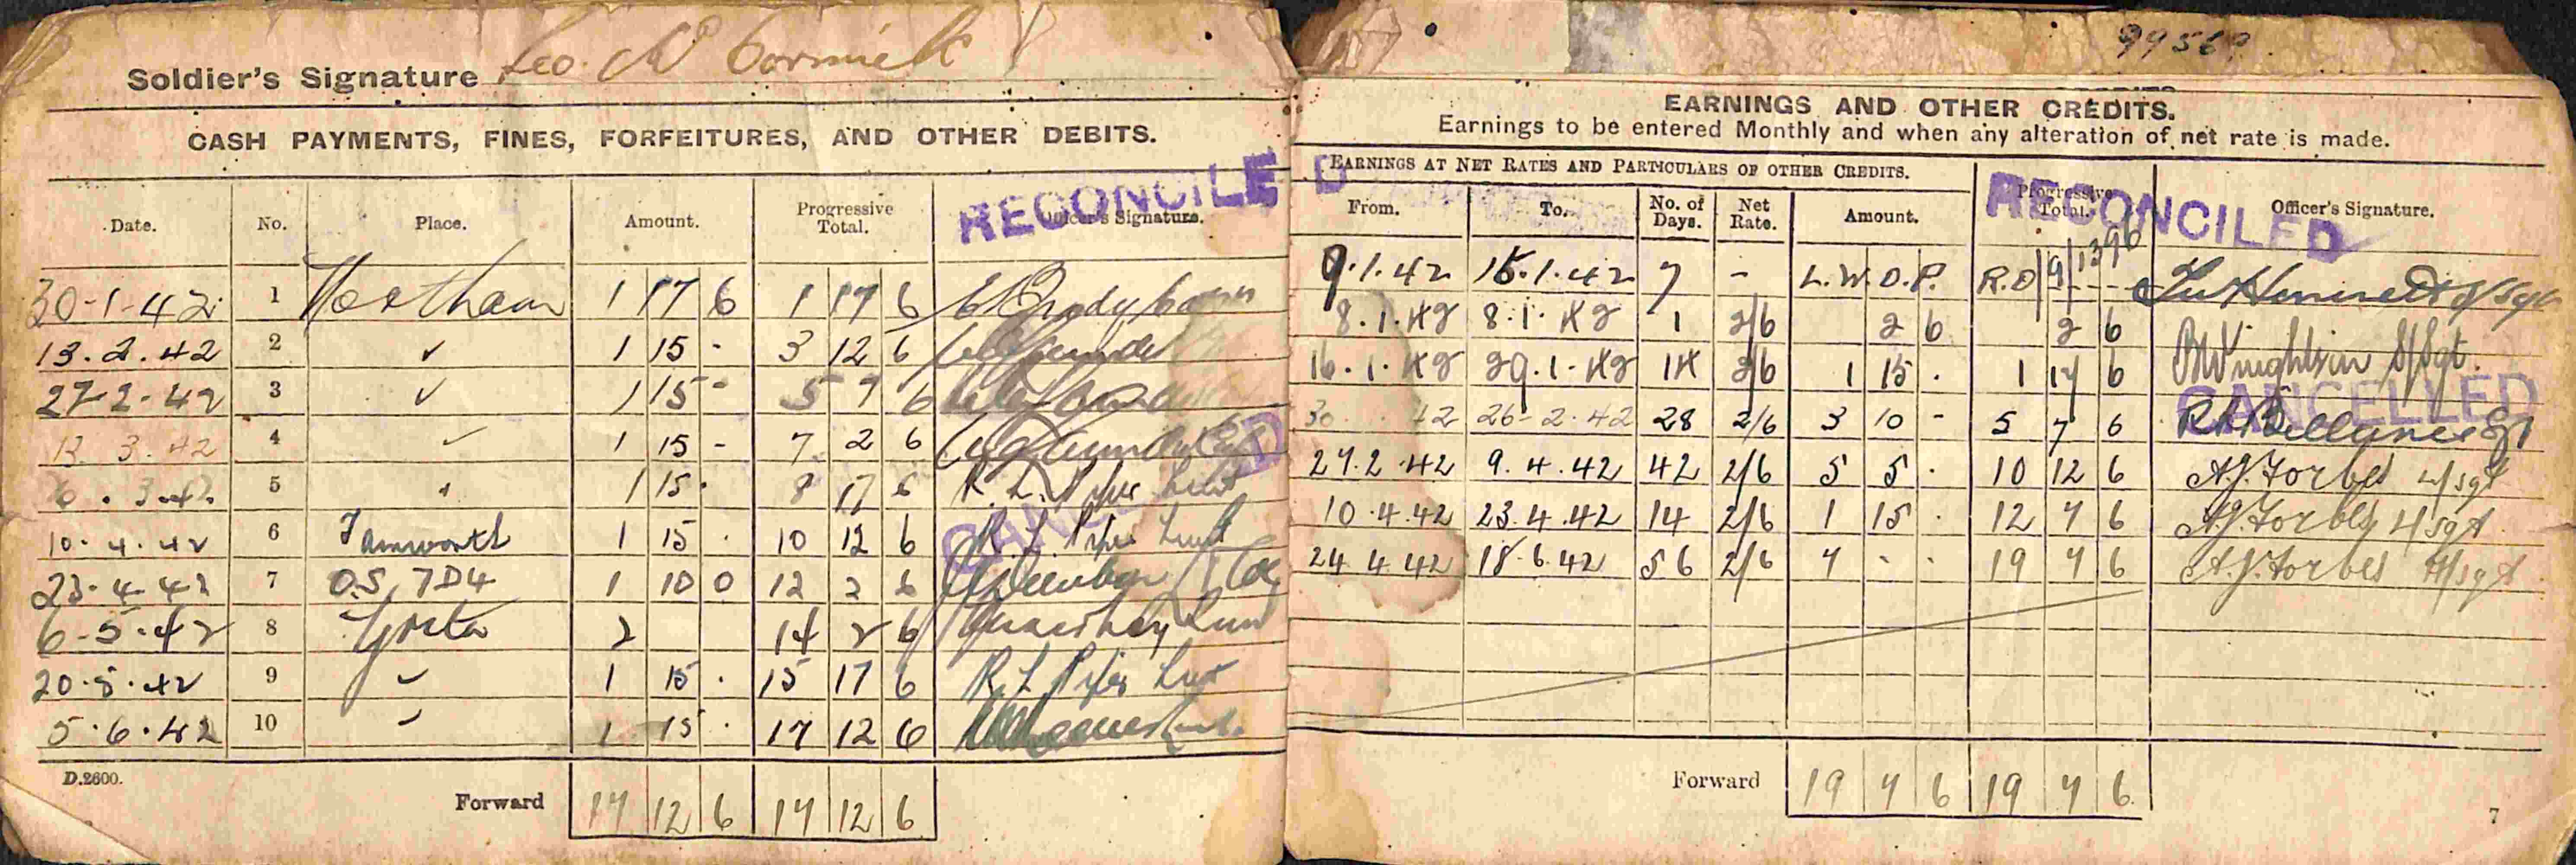 Soldier's Signature Geo. McCormick
CASH PAYMENTS, FINES, FORFEITURES, AND OTHER DEBITS.
RECONCILED
Date. No. Place. Amount. Progressive Total. Officer's Signature.
30-1-42 1 Northam 1 17 6 1 17 6
13.2.42 2 ✓ 1 15 - 3 12 6
27-2-42 3 ✓ 1 15 - 5 7 6
13 3.42 4 ✓ 1 15 - 7 2 6
3.42 5 " 1 15 . 8 17 6 R. L. Piper Lieut
10.4.42 6 Tamworth 1 15 . 10 12 6 R. L. Piper Lieut
CANCELLED
23.4.42 7 O.S. 7D4 1 10 0 12 2 6
6-5-42 8 2 14 2 6
20.5.42 9 ✓ 1 15 . 15 17 6 R. L. Piper Lieut
5.6.42 10 ✓ 1 15 . 17 12 6
D.2600.
Forward 17 12 6 17 12 6
99569
EARNINGS AND OTHER CREDITS.
Earnings to be entered Monthly and when any alteration of net rate is made.
EARNINGS AT NET RATES AND PARTICULARS OF OTHER CREDITS.
RECONCILED
From. To. No. of Days. Net Rate. Amount. Progressive Total. Officer's Signature.
9.1.42 15.1.42 7 - L.W.O.P. R.O/9/1396
8.1.42 8.1.42 1 2/6 2 6 2 6
16.1.42 29.1.42 14 2/6 1 15 . 1 17 6 S/Sgt.
CANCELLED
30 42 26-2-42 28 2/6 3 10 - 5 7 6
27.2.42 9.4.42 42 2/6 5 5 . 10 12 6 A.J. Forbes
10.4.42 23.4.42 14 2/6 1 15 . 12 7 6 A.J. Forbes
24.4.42 18.6.42 56 2/6 7 . . 19 7 6 A.J. Forbes
Forward 19 7 6 19 7 6
7